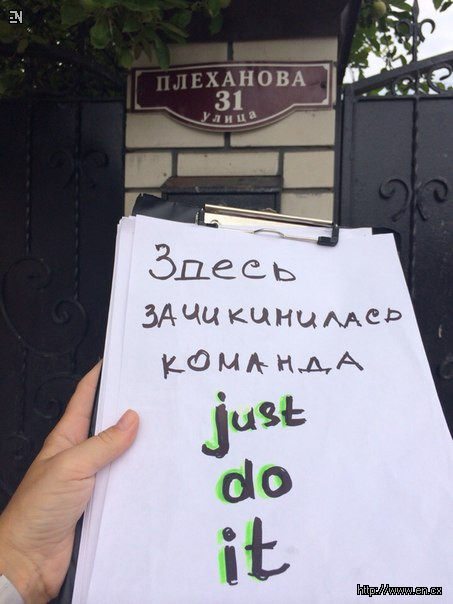 EN
ПЛЕХАНОВА
31
улица
Здесь
зачикинилась
команда
just
do
it
http://www.en.cx